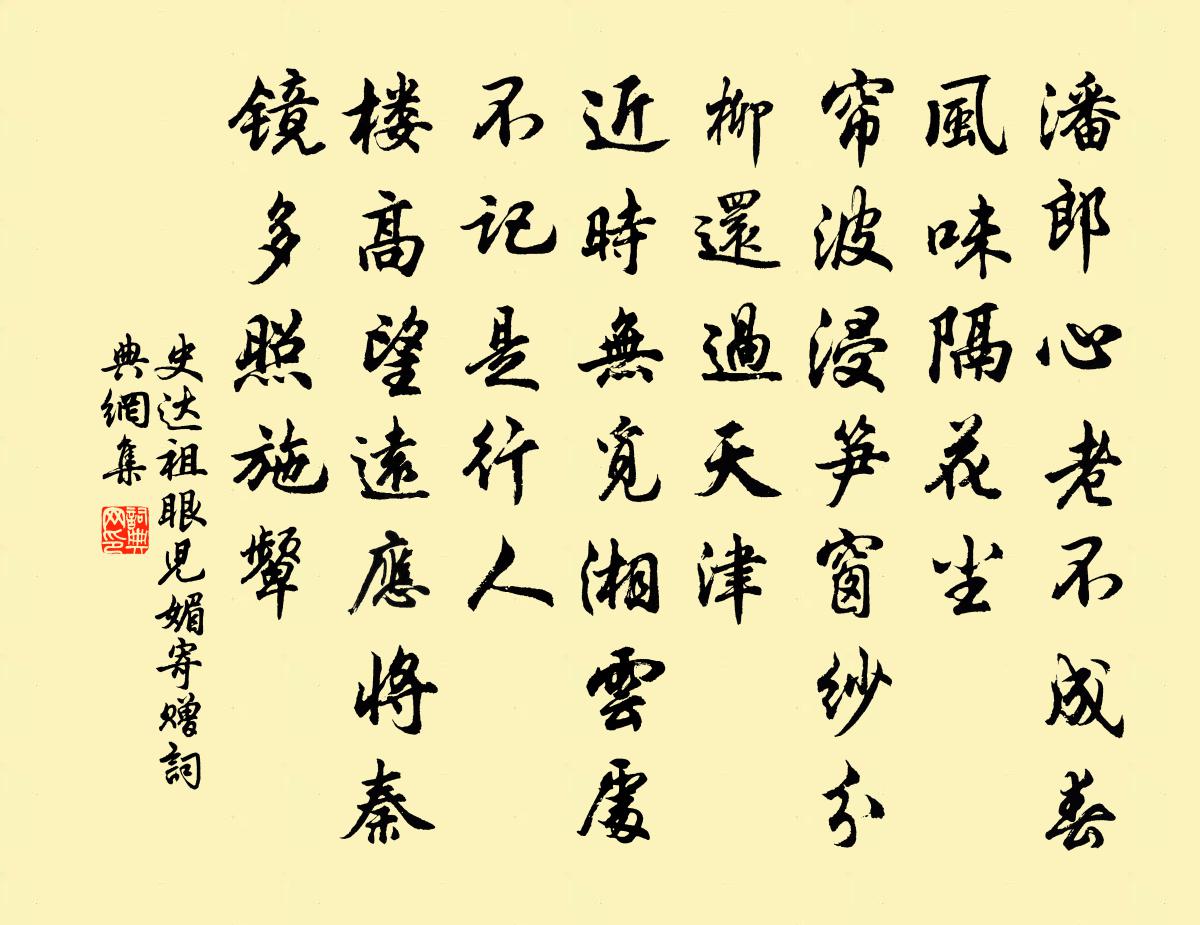 潘郎心老不成春
風味隔花尘
帘波浸笋窗紗分
柳還過天津
近時無覓湘雲處
不记是行人
楼高望遠應將秦
镜多照施颦
史达祖眼児媚寄赠詞
典網集
詞典
网印